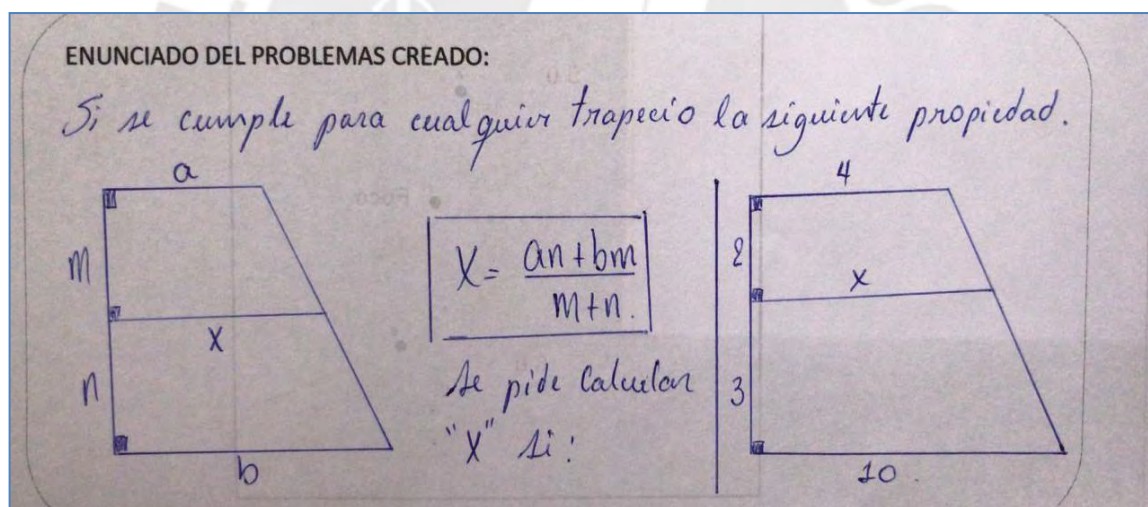 ENUNCIADO DEL PROBLEMAS CREADO:
Si se cumple para cualquier trapecio la siguiente propiedad.
a
m
x
n
b
X = an + bm
m + n.
se pide Calcular
"X" si:
4
2
x
3
10.